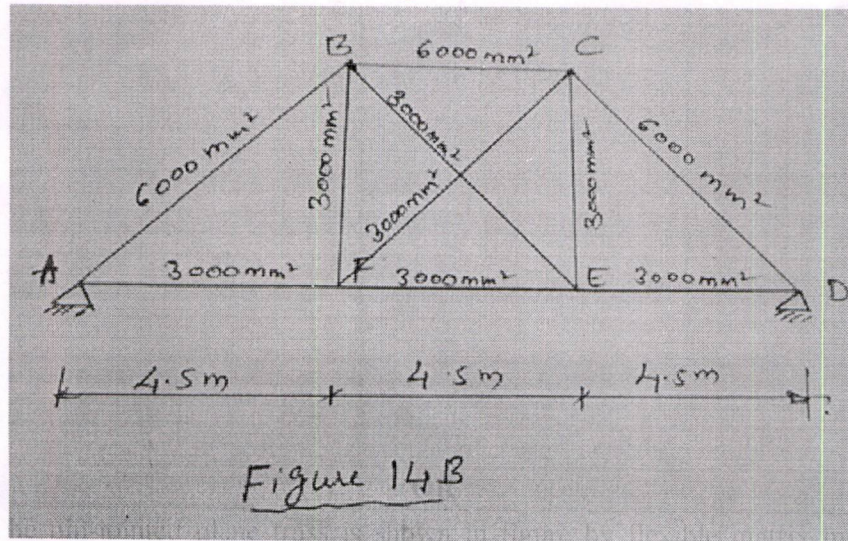 B
6000mm²
C
6000 mm²
3000mm²
3000mm²
3000mm²
3000mm²
6000 mm²
A
3000mm²
F
3000mm²
E
3000mm²
D
4.5m
4.5m
4.5m
Figure 14B